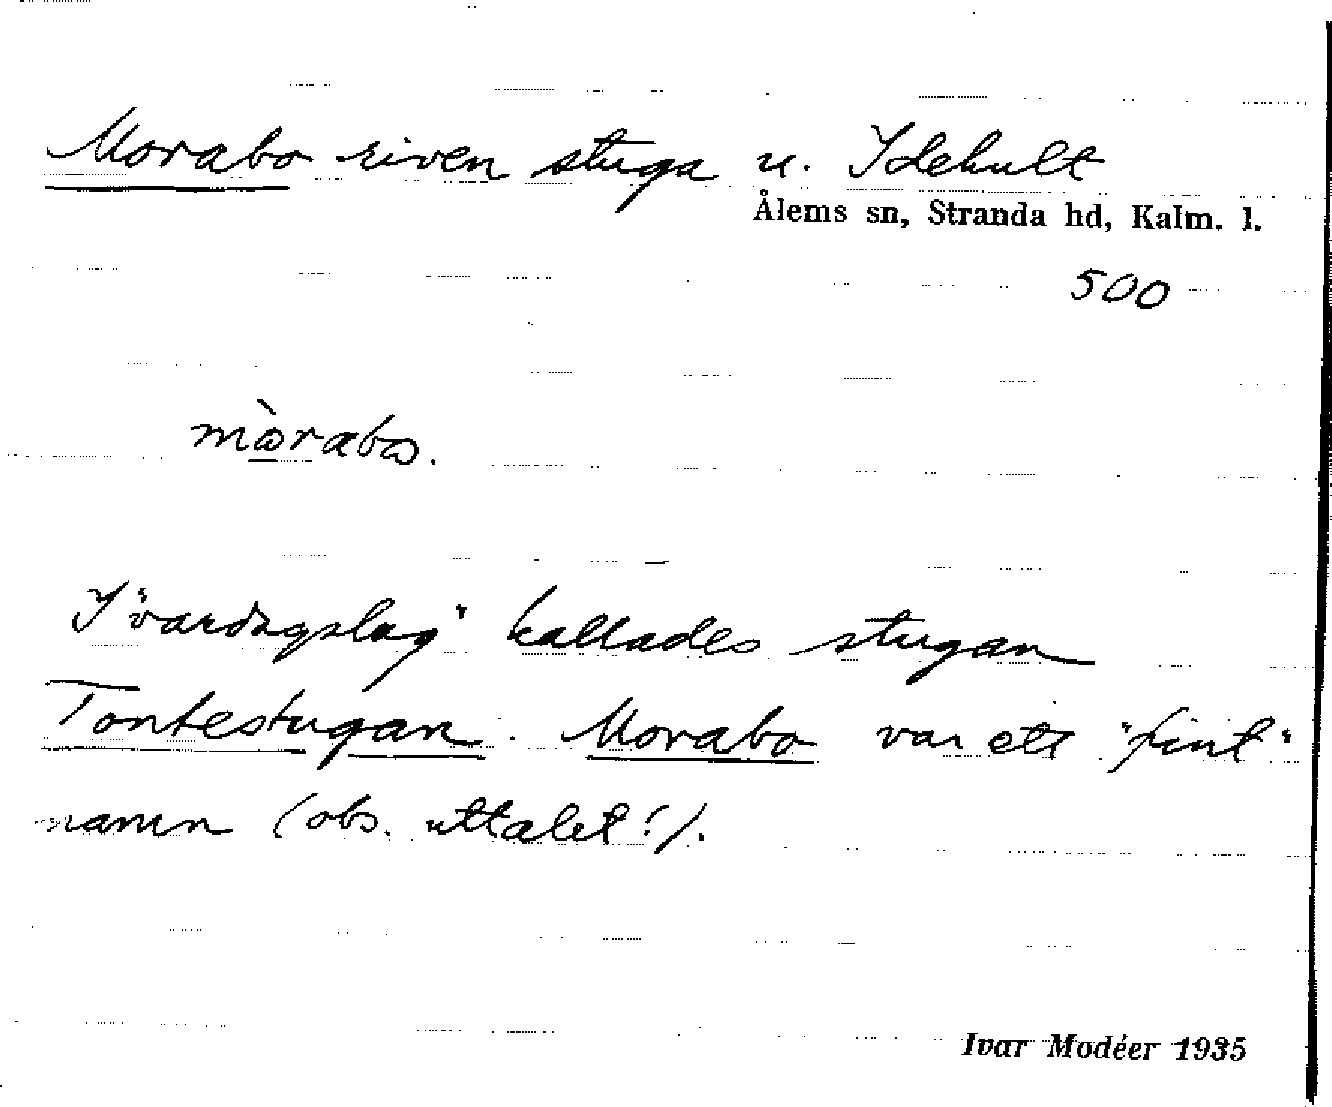 Morabo riven stuga u. Idehult
Ålems sn, Stranda hd, Kalm. l.
500
mòrabo.
I "vardagslag" kallades stugan
Tontestugan. Morabo var ett "fint"
namn (obs. uttalet!).
Ivar Modéer 1935